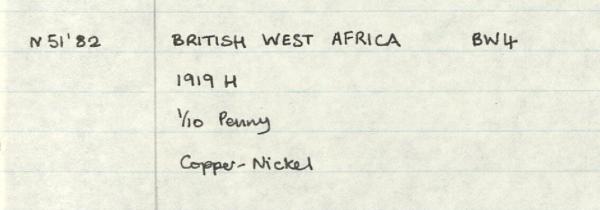 N51'82 BRITISH WEST AFRICA BW4
1919 H
1/10 Penny
Copper-Nickel